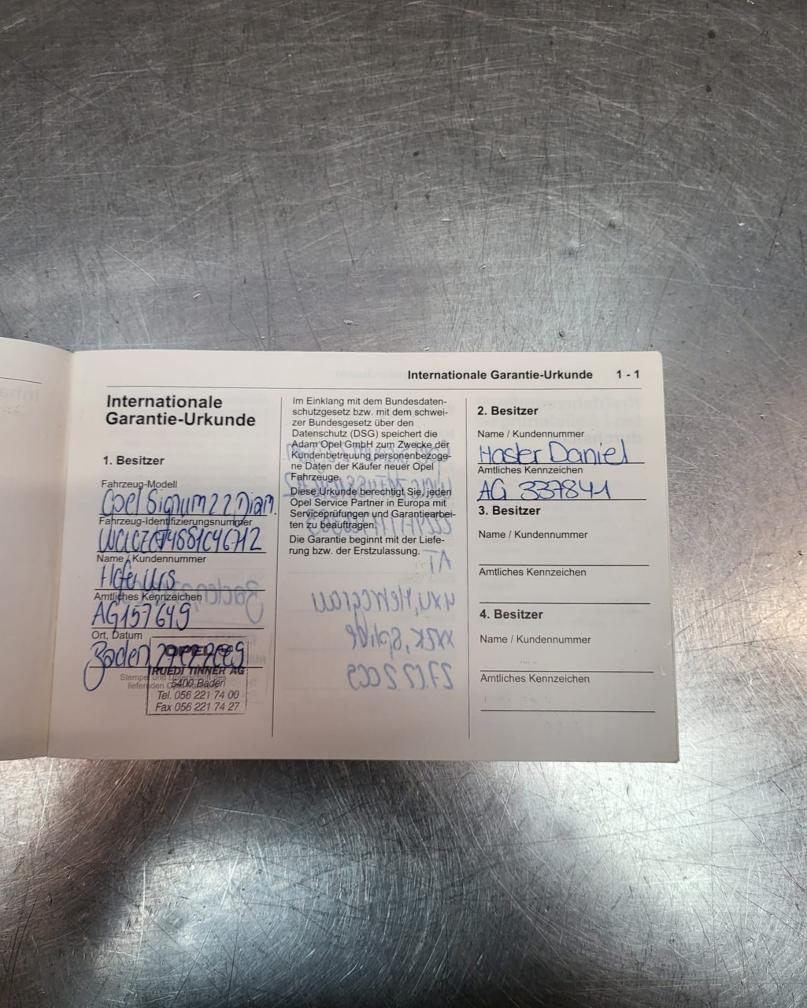 Internationale Garantie-Urkunde 1 - 1
Internationale
Garantie-Urkunde
1. Besitzer
Fahrzeug-Modell
Opel Signum 2 2 Diam.
Fahrzeug-Identifizierungsnummer
Name / Kundennummer
Urs
Amtliches Kennzeichen
AG 157649
Ort, Datum
Baden
RUEDI TINNER AG
5400 Baden
Tel. 056 221 74 00
Fax 056 221 74 27
Im Einklang mit dem Bundesdaten-
schutzgesetz bzw. mit dem schwei-
zer Bundesgesetz über den
Datenschutz (DSG) speichert die
Adam Opel GmbH zum Zwecke der
Kundenbetreuung personenbezoge-
ne Daten der Käufer neuer Opel
Fahrzeuge.
Diese Urkunde berechtigt Sie, jeden
Opel Service Partner in Europa mit
Serviceprüfungen und Garantiearbei-
ten zu beauftragen.
Die Garantie beginnt mit der Liefe-
rung bzw. der Erstzulassung.
2. Besitzer
Name / Kundennummer
Daniel
Amtliches Kennzeichen
AG 337841
3. Besitzer
Name / Kundennummer
Amtliches Kennzeichen
4. Besitzer
Name / Kundennummer
Amtliches Kennzeichen